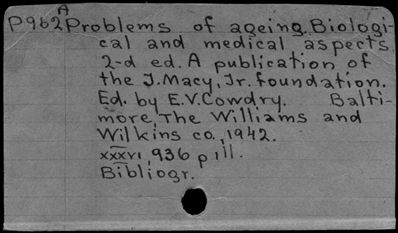 A
P962 Problems of ageing. Biologi-
cal and medical aspects.
2-d ed. A publication of
the J. Macy, Jr. foundation.
Ed. by E.V. Cowdry. Balti-
more, The Williams and
Wilkins co., 1942.
xxxvi, 936 p ill.
Bibliogr.